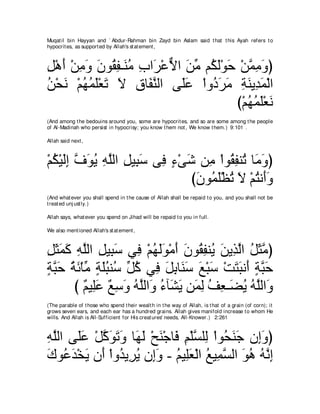 Muqatil bin Hayyan and `Abdur-Rahman bin Zayd bin Aslam said that this Ayah refers to
hypocrites, as supported by Allah's statement,
(وَمِمَّنْ حَوْلَكُم مِّنَ الاٌّعْرَابِ مُنَـفِقُونَ وَمِنْ أَهْلِ
الْمَدِينَةِ مَرَدُواْ عَلَى النَّفَاقِ لاَ تَعْلَمُهُمْ نَحْنُ
نَعْلَمُهُمْ)
(And among the bedouins around you, some are hypocrites, and so are some among the people
of Al-Madinah who persist in hypocrisy; you know them not, We know them.) 9:101 .
Allah said next,
(وَمَا تُنفِقُواْ مِن شَىْءٍ فِى سَبِيلِ اللَّهِ يُوَفَّ إِلَيْكُمْ
وَأَنتُمْ لاَ تُظْلَمُونَ)
(And whatever you shall spend in the cause of Allah shall be repaid to you, and you shall not be
treated unjustly.)
Allah says, whatever you spend on Jihad will be repaid to you in full.
We also mentioned Allah's statement,
(مَّثَلُ الَّذِينَ يُنفِقُونَ أَمْوَلَهُمْ فِي سَبِيلِ اللَّهِ كَمَثَلِ
حَبَّةٍ أَنبَتَتْ سَبْعَ سَنَابِلَ فِي كُلِّ سُنبُلَةٍ مِّاْئَةُ حَبَّةٍ
وَاللَّهُ يُضَـعِفُ لِمَن يَشَآءُ وَاللَّهُ وَسِعٌ عَلِيمٌ )
(The parable of those who spend their wealth in the way of Allah, is that of a grain (of corn); it
grows seven ears, and each ear has a hundred grains. Allah gives manifold increase to whom He
wills. And Allah is All-Sufficient for His creatures' needs, All-Knower.) 2:261
(وَإِن جَنَحُواْ لِلسَّلْمِ فَاجْنَحْ لَهَا وَتَوَكَّلْ عَلَى اللَّهِ
إِنَّهُ هُوَ السَّمِيعُ الْعَلِيمُ - وَإِن يُرِيدُواْ أَن يَخْدَعُوكَ